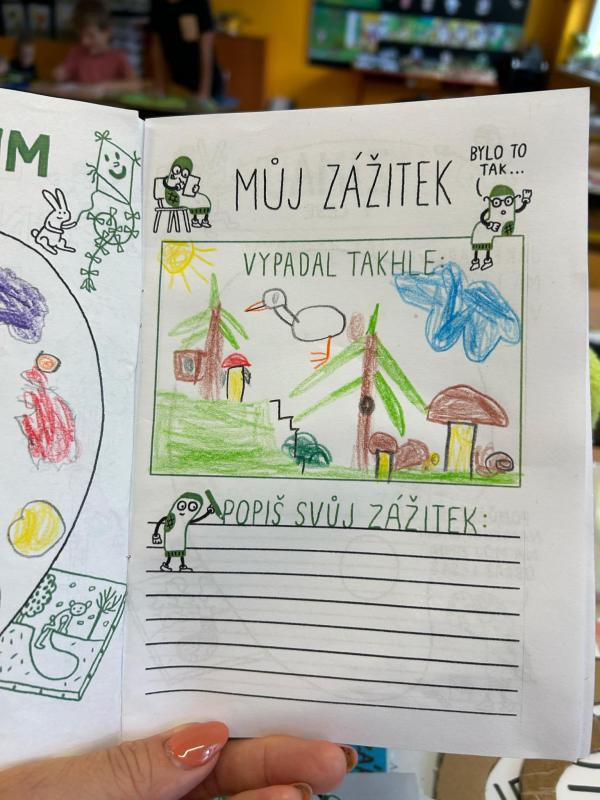 UM
MŮJ ZÁŽITEK
BYLO TO
TAK...
VYPADAL TAKHLE:
POPIŠ SVŮJ ZÁŽITEK: